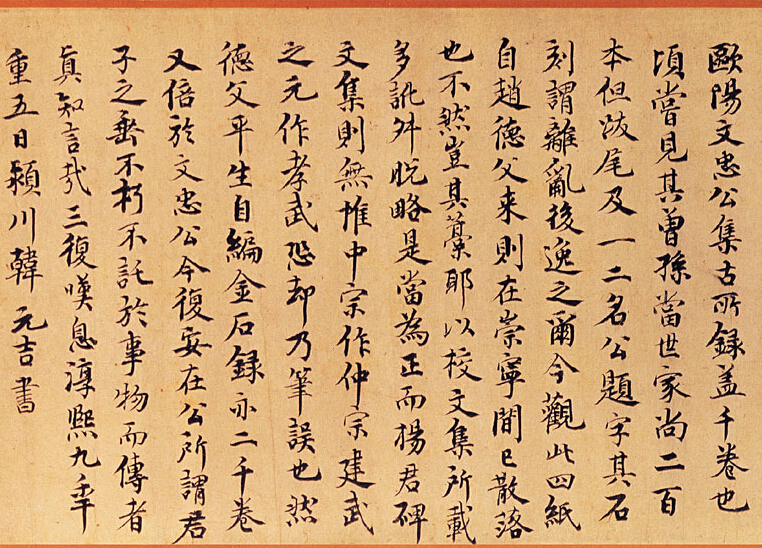 歐陽文忠公集古所録盖千卷也
頃嘗見其曽孫當世家尚二百
本但跋尾及一二名公題字其石
刻謂離亂後逸之爾今觀此四紙
自趙德父来則在崇寧間已散落
也不然豈其藁耶以校文集所載
多訛舛脫略是當為正而揚君碑
文集則無惟中宗作仲宗建武
之元作孝武恐却乃筆誤也然
德父平生自編金石録亦二千卷
又倍於文忠公今復安在公所謂君
子之垂不朽不託於事物而傳者
真知言哉三復嘆息淳熙九年
重五日潁川韓元吉書